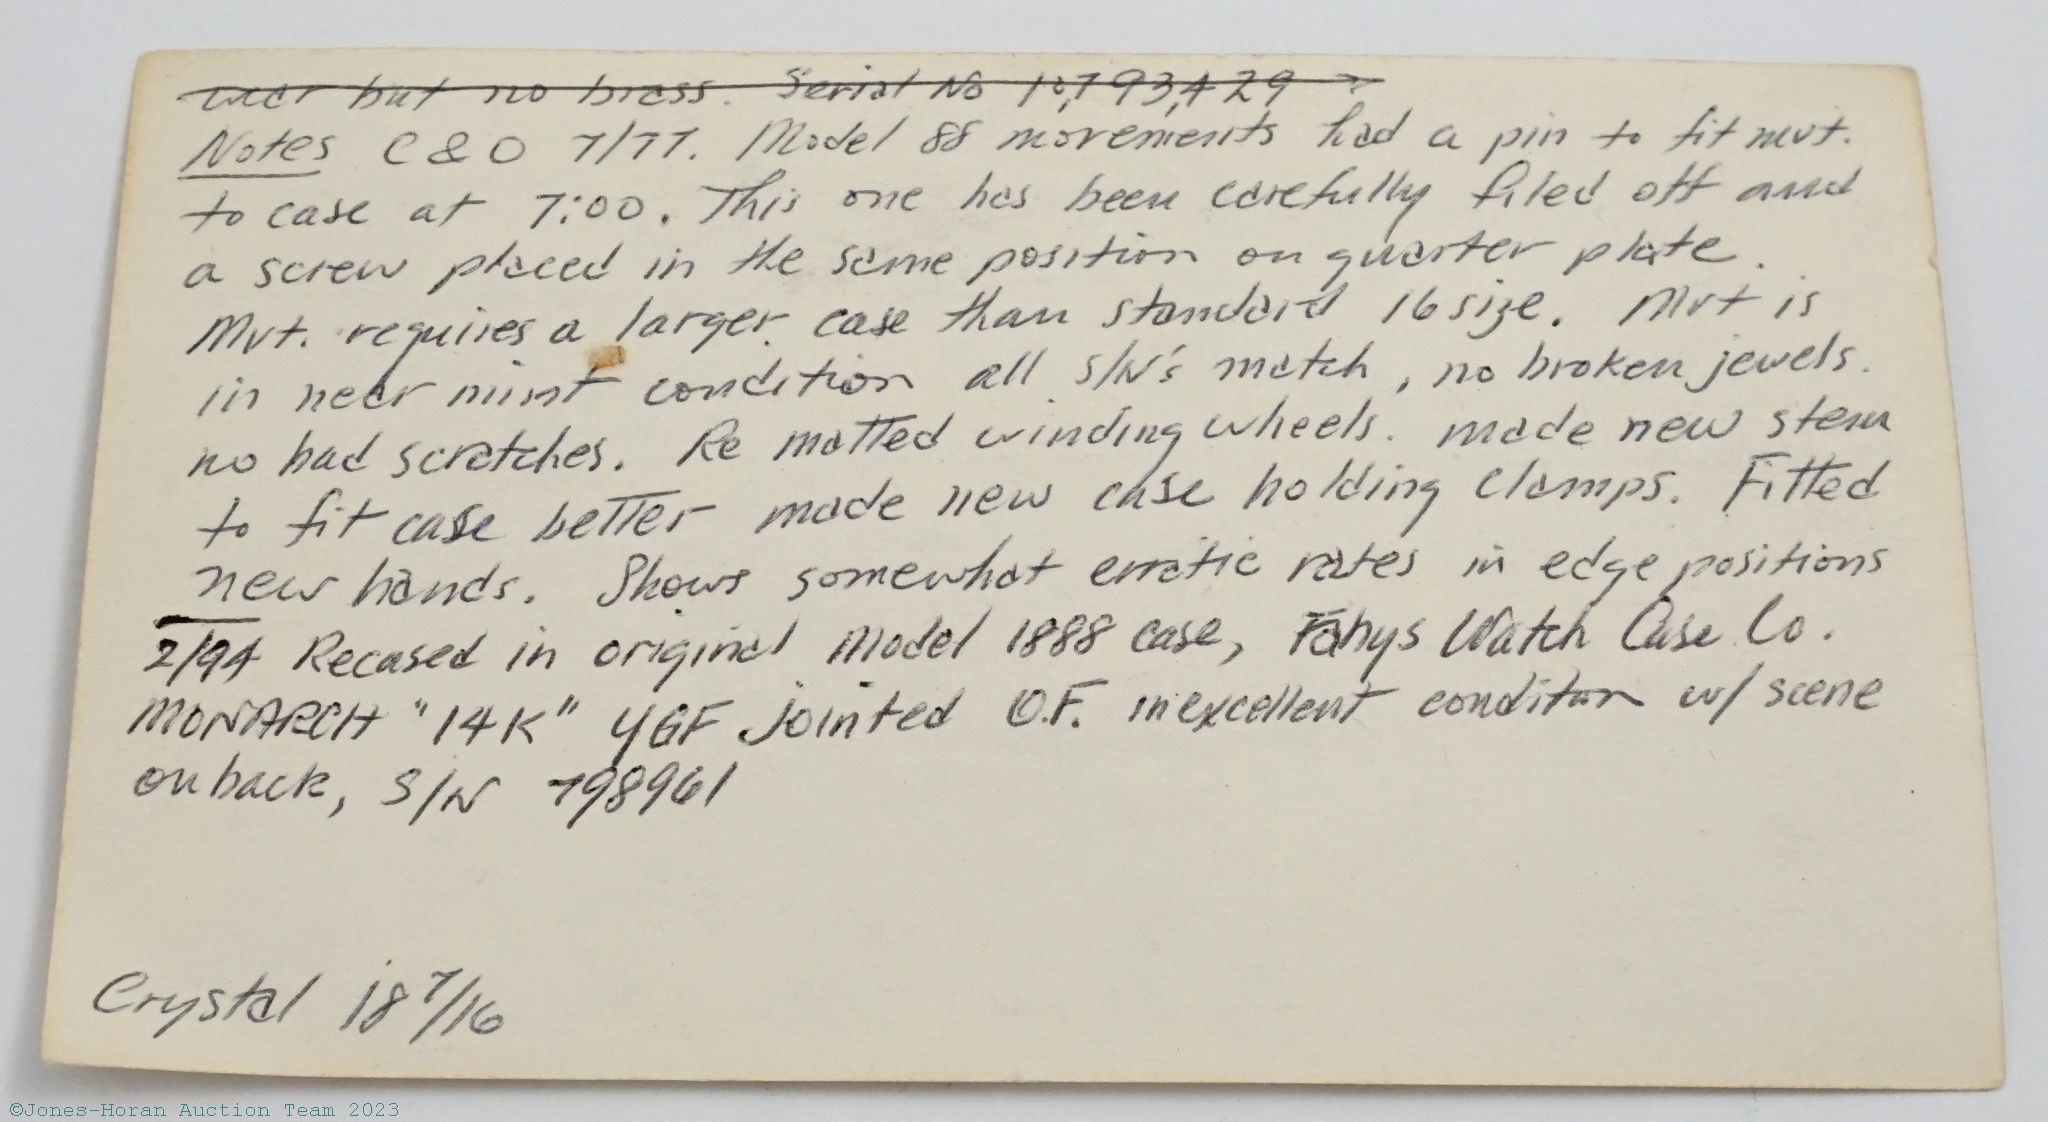 wear but no brass. Serial No 10,793,429
Notes C & O 7/77. Model 88 movements had a pin to fit mvt.
to case at 7:00. This one has been carefully filed off and
a screw placed in the same position on quarter plate.
Mvt. requires a larger case than standard 16 size. Mvt is
in near mint condition all S/N's match, no broken jewels.
no bad scratches. Re matted winding wheels. made new stem
to fit case better made new case holding clamps. Fitted
new hands. Shows somewhat erratic rates in edge positions
2/94 Recased in original Model 1888 case, Fahys Watch Case Co.
MONARCH "14K" YGF jointed O.F. in excellent conditon w/ scene
on back, S/N 798961
Crystal 18 7/16
©Jones-Horan Auction Team 2023